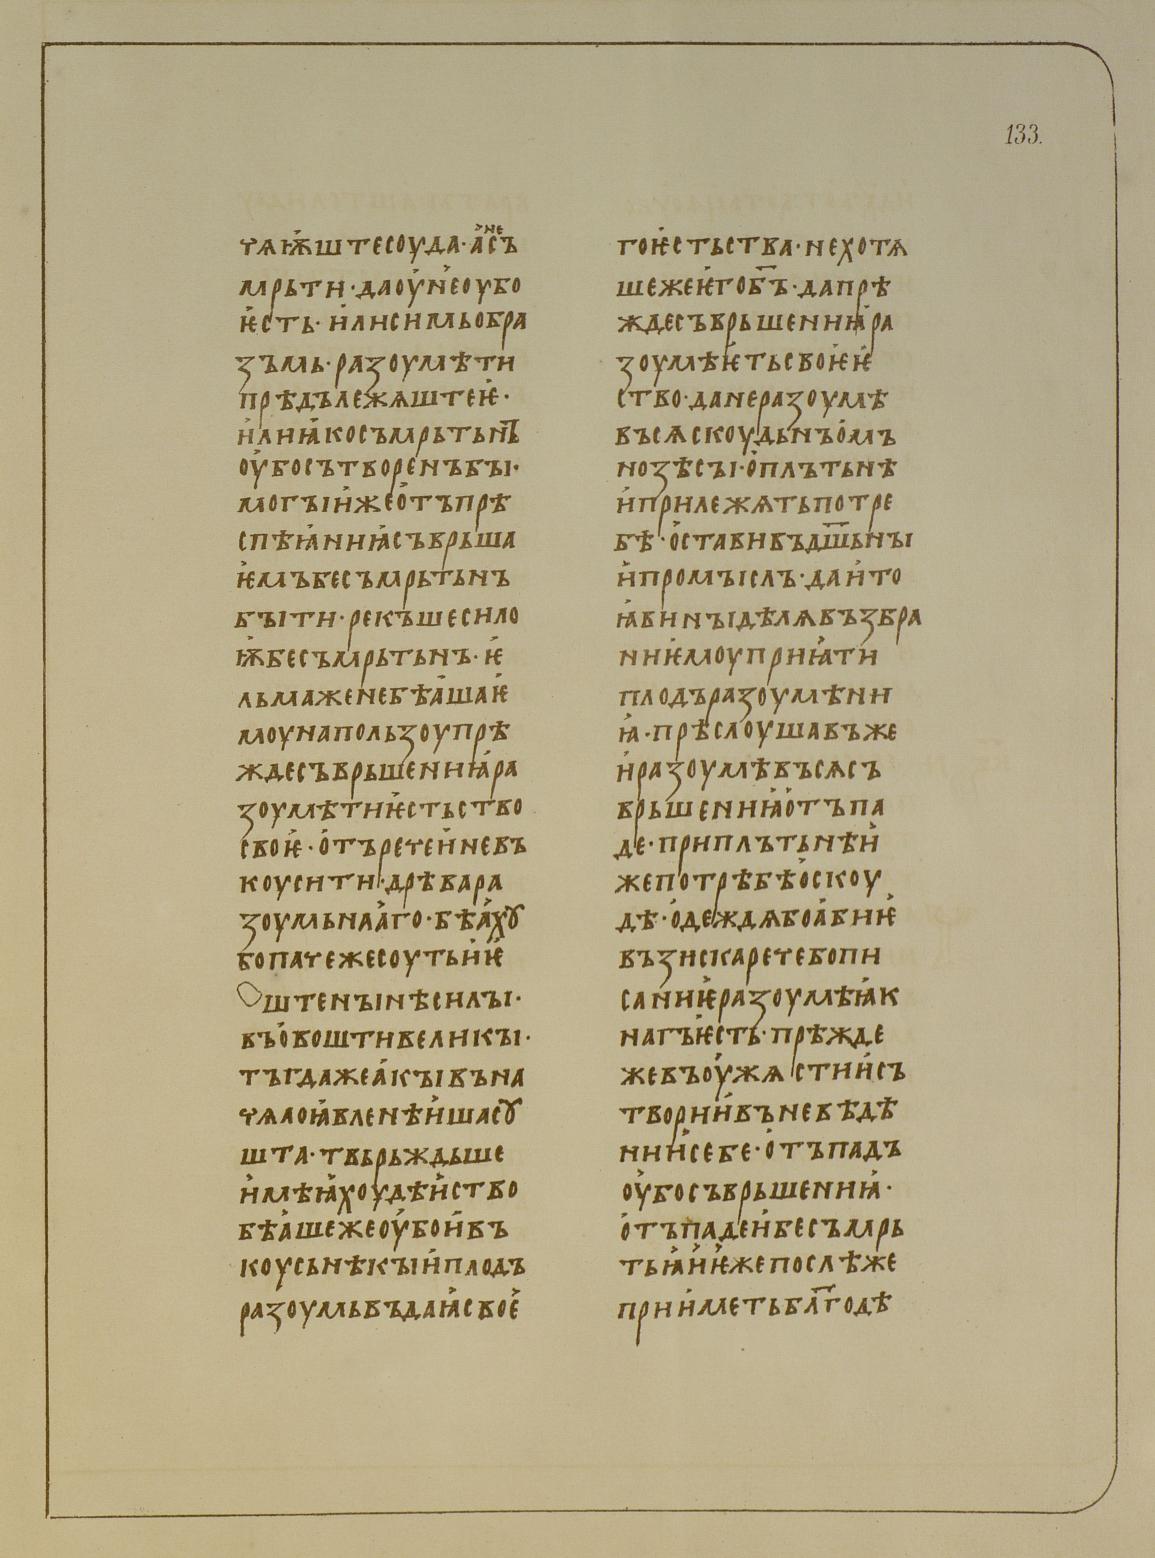 133.
чѧѭштесоуда·а҅не с҅ъ
мрьти·даоу҅не҅оубо
ѥ҅сть·и҅лисимьобра
зъмь·разоумѣти
прѣдълежѧштеѥ҅·
и҅лиꙗ҅косъмрьтьнъ
оу҅босътворенъбꙑ·
могꙑи҅жео҅тъпрѣ
спѣꙗ҅ниꙗ҅съврьша
ѥ҅мъбесъмрьтьнъ
бꙑти·рекъшесило
ѭ҅бесъмрьтьнъ·ѥ҅
льмаженебѣа҅шаѥ҅
моунапользоупрѣ
ждесъврьшениꙗ҅ра
зоумѣтиѥ҅стьство
своѥ҅·о҅търечеи҅невъ
коусити·дрѣвара
зоумьнаа҅го·бѣа҅хꙋ
бопачежесоутьи҅ѥ҅
Оштенꙑнѣсилꙑ·
въо҅воштивеликꙑ·
тъгдажеа҅кꙑвъна
чѧлоꙗ҅вленѣи҅шасꙋ
шта·твьрьждьше
и҅мѣꙗ҅хоудѣи҅ство
бѣа҅шежеоу҅бои҅въ
коусьнѣкꙑи҅плодъ
разоумьвъдаꙗ҅своѥ҅
гоѥ҅стьства·нехотѧ
шежеѥ҅гобъ҃·дапрѣ
ждесъврьшениꙗ҅ра
зоумѣѥ҅тьсвоѥ҅ѥ҅
ство·данеразоумѣ
въсѧскоудьнъо҅мъ
нозѣсꙑ·о҅плътьнѣ
и҅прилежѧтьпотре
бѣ·о҅ставивъдш҃ьнꙑ
и҅промꙑслъ·даи҅то
ꙗ҅винꙑдѣлѧвъзбра
ниѥ҅моуприꙗ҅ти
плодъразоумѣни
ꙗ҅·прѣслоушавъже
и҅разоумѣвъсѧсъ
врьшениꙗ҅о҅тъпа
де·приплътьнѣи҅
жепотрѣбѣо҅скоу
дѣ·о҅деждѧбоа҅биѥ҅
възискаречебопи
саниѥ҅разоумѣꙗ҅к
нагъѥ҅сть·прѣжде
жевъоу҅жѧстии҅съ
твории҅въневѣдѣ
нии҅себе·о҅тъпадъ
оу҅босъврьшениꙗ҅·
о҅тъпадеи҅бесъмрь
тьꙗ҅и҅ѥ҅жепослѣже
прии҅метьблг҃одѣ